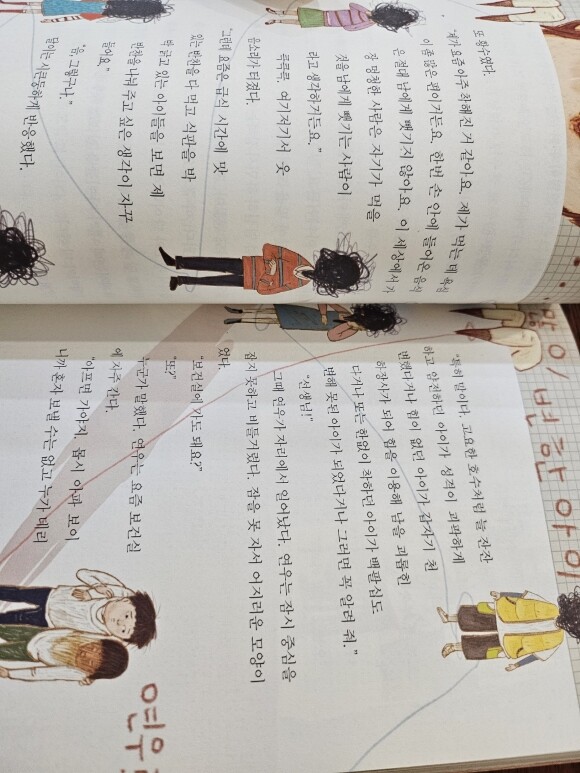 또 황수였다.
"내가 요즘 아주 착해진 거 같아요. 제가 먹는 데 욕심
이 좀 많은 편이거든요. 한번 손 안에 들어온 음식
은 절대 남에게 뺏기지 않아요. 이 세상에서 가
장 멍청한 사람은 자기가 먹을
것을 남에게 뺏기는 사람이
라고 생각하거든요."
쿡쿡쿡, 여기저기서 웃
음소리가 터졌다.
그런데 요즘은 급식 시간에 맛
있는 반찬을 다 먹고 식판을 박
박 긁고 있는 아이들을 보면 제
반찬을 나눠 주고 싶은 생각이 자꾸
들어요."
"음, 그렇구나."
담이는 시큰둥하게 반응했다.
변한 아이
"특히 말이다. 고요한 호수처럼 늘 잔잔
하고 얌전하던 아이가 성격이 괴팍하게
변했다거나 힘이 없던 아이가 갑자기 천
하장사가 되어 힘을 이용해 남을 괴롭힌
다거나 또는 한없이 착하던 아이가 백팔십도
변해 못된 아이가 되었다거나 그러면 꼭 알려 줘."
"선생님!"
그때 연우가 자리에서 일어났다. 연우는 잠시 중심을
잡지 못하고 비틀거렸다. 잠을 못 자서 어지러운 모양이
었다.
"보건실에 가도 돼요?"
"또?"
누군가 말했다. 연우는 요즘 보건실
에 자주 간다.
"아프면 가야지. 몹시 아파 보이
니까 혼자 보낼 수는 없고 누가 데리
연우